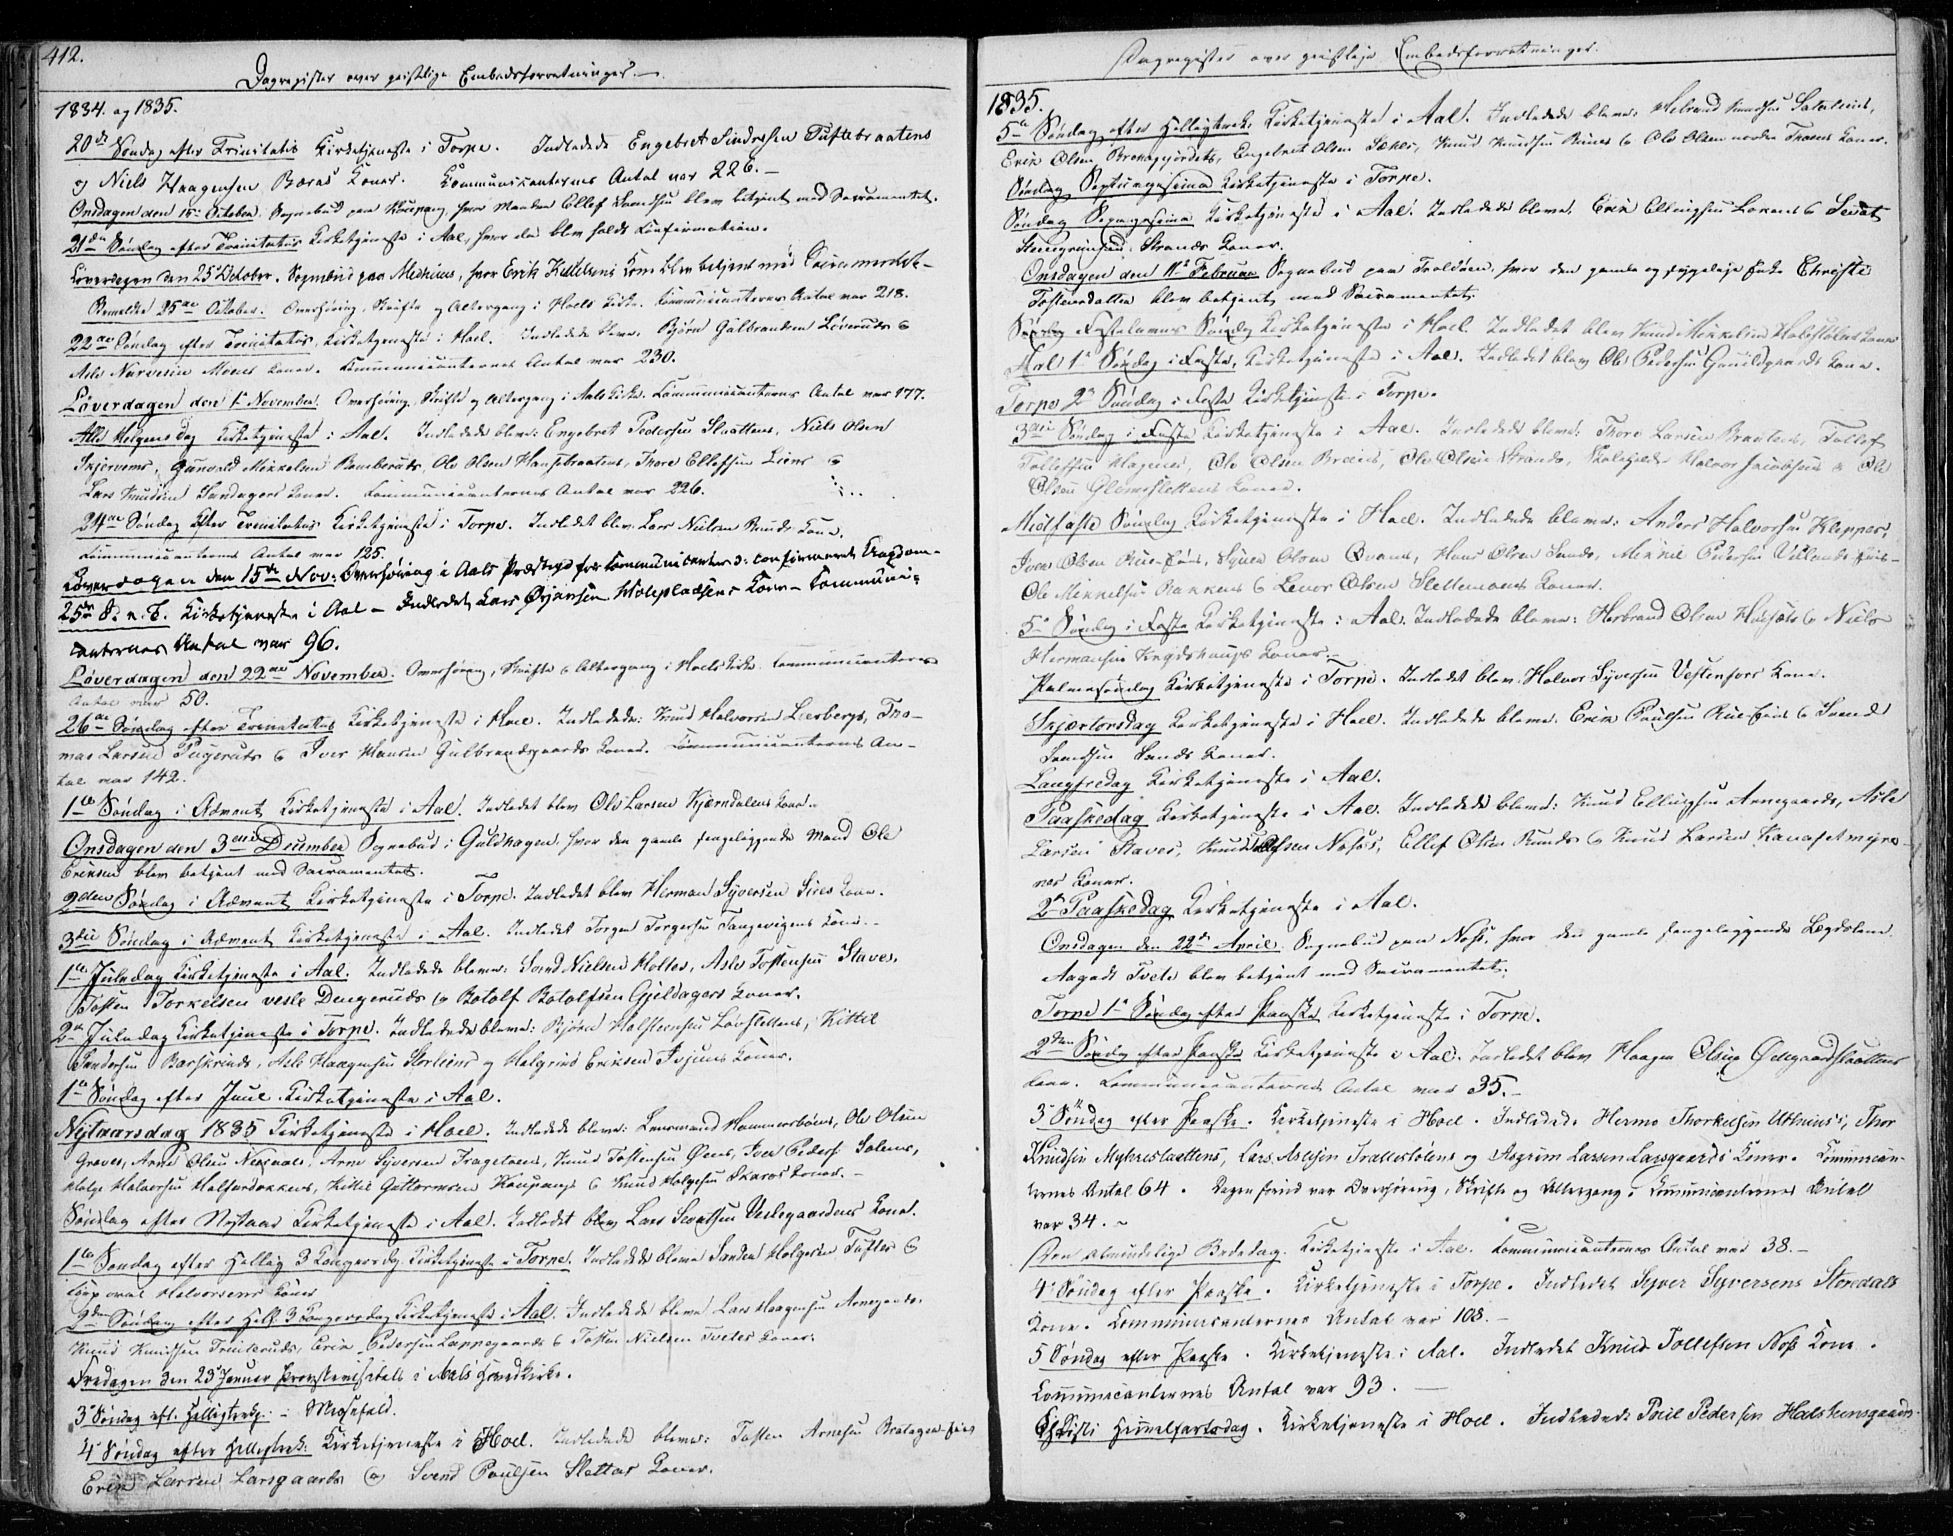 412.
Dagregister over geistlige Embedsforretninger.
1834. og 1835.
20de Søndag efter Trinitatis Kirketjeneste i Torpe. Indledede Engebret Sindresen Tuftebraatens
og Niels Haagensen Boras Koner. Kommunicanternes Antal var 226.
Onsdagen den 15de October. Sognebud paa Kaupang, hvor Manden Ellef Knudsen blev betjent med Sacramentet.
21de Søndag efter Trinitatis Kirketjeneste i Aal, hvor der blev holdt Confirmation.
Løverdagen den 25 October. Sognebud paa Medhuus, hvor Erik Kittelsens Kone blev betjent med Sacramentet.
Bemeldte 25de October. Overhøring, Skrifte og Altergang i Hoels Kirke. Communicanternes Antal var 218.
22de Søndag efter Trinitatis, Kirketjeneste i Hoel. Indledede bleve: Bjørn Gulbrandsen Løveruds &
Asle Narvesen Moens Koner. Communicanternes Antal var 230.
Løverdagen den 1te November. Overhøring, Skrifte og Altergang i Aals Kirke. Communicanternes Antal var 177.
Alle Helgens dag Kirketjeneste i Aal. Indledede bleve: Engebret Pedersen Slaattens, Niels Olsen
Skjervems, Gunvald Mikkelsen Bamberuds, Ole Olsen Hansebraatens, Thore Ellefsen Liens &
Lars Knudsen Sundagers Koner. Communicanternes Antal var 226.
24de Søndag efter Trinitatis Kirketjeneste i Torpe. Indledet blev Lars Nielsen Ruuds Kone.
Communicanternes Antal var 125.
Løverdagen den 15de Nov: Overhøring i Aals Præstegd for Communicanter o: confirmeret Ungdom
25de S. e. T. Kirketjeneste i Aal – Indledet Lars Ørjansen Holepladsens Kone – Communi-
canternes Antal var 96.
Løverdagen den 22de November. Overhøring, Skrifte & Altergang i Hoels Kirke. Communicanternes
Antal var 50.
26de Søndag efter Trinitatis Kirketjeneste i Hoel. Indledede: Knud Halvorsen Lerbergs, Tho-
mas Larsen Pugeruds & Iver Hansen Gulbrandsgaards Koner. Communicanternes An-
tal var 142.
1te Søndag i Advent Kirketjeneste i Aal. Indledet blev Ole Larsen Kjerndalens Kone.
Onsdagen den 3die December Sognebud i Guldhagen, hvor den gamle sengeliggende Mand Ole
Eriksen blev betjent med Sacramentet.
2den Søndag i Advent Kirketjeneste i Torpe. Indledet blev Herman Syversen Sires Kone.
3die Søndag i Advent Kirketjeneste i Aal. Indledet Torger Torgersen Tangevigens Kone.
1te Juledag Kirketjeneste i Aal. Indledede bleve: Svend Nielsen Holtes, Asle Tostensen Staves,
Tosten Torkelsen vesle Dengeruds & Botolf Botolfsen Gjeldagers Koner.
2den Juledag Kirketjeneste i Torpe. Indledede bleve: Bjørn Holstensen Løvslettens, Kittil
Sandersen Barskrinds, Asle Haagensen Storliens og Holgrim Eriksen Tvjuus Koner.
1te Søndag efter Juul Kirketjeneste i Aal.
Nytaarsdag 1835 Kirketjeneste i Hoel. Indledede bleve: Lensmand Hammersbøens, Ole Olsen
Graves, Arne Olsen Nersaals, Arne Syversen Trageteens, Knud Tostensen Øens, Iver Peders: Solems,
Holge Halvorsen Halfardokkens, Kittil Guttormsen Kaupangs & Knud Holgesen Skaros Koner.
Søndag efter Nytaar Kirketjeneste i Aal. Indledet blev Lars Sevatsen Veslegaardens Kone.
1te Søndag efter Hellig 3 Kongersdag Kirketjeneste i Torpe. Indledede bleve Sander Holgersen Tuftes &
Halvorsens Koner
2den Søndag efter Hell: 3 Kongersdag Kirketjeneste i Aal. Indledede bleve Lars Haagensen Arnegaards,
Knud Knudsen Trinteruds, Erik Pedersen Lappegaards & Tosten Nielsen Tvetes Koner.
Fredagen den 23 Januar Provstevisitats i Aals Hovedkirke.
3de Søndag eft. Helligtrek: – Messefald.
4de Søndag efter Helligtrek: Kirketjeneste i Hoel. Indledede bleve: Tosten Arnesen Brotagen-Eies
Erik Larsen Larsgaards og Svend Poulsen Slettas Koner.
Dagregister over geistlige Embedsforretninger.
1835.
5te Søndag efter Helligtrek: Kirketjeneste i Aal. Indledede bleve: Knudsen
Erik Olsen Brenagjerdets, Engebret Olsen Skes, Knud Knudsen Rimes & Ole Olsen nordre Thoens Koner.
Søndag Septuagesima Kirketjeneste i Torpe.
Søndag Sexagesima Kirketjeneste i Aal. Indledede bleve: Erik Ellingsen Lorens & Sevat
Steengrimsen Strands Koner.
Onsdagen den 11te Februar Sognebud paa Troldøen, hvor den gamle og sygelige Enke Christi
Tostensdatter blev betjent med Sacramentet.
Fastelavns Søndag Kirketjeneste i Hoel. Indledet blev Knud Mikkelsen Kone
Aal 1te Søndag i Faste, Kirketjeneste i Aal. Indledet blev Ole Pedersen Gunildgaards Kone.
Torpe 2den Søndag i Faste Kirketjeneste i Torpe.
3die Søndag i Faste Kirketjeneste i Aal. Indledede bleve: Thore Larsen Braatens, Tollef
Tollefsen Hagenes, Ole Olsen Breens, Ole Olsen Strands, Skoleholder Halvor Jacobsens & Ole
Olsen Ølemoslettens Koner.
Midfaste Søndag Kirketjeneste i Hoel. Indledede bleve: Anders Halvorsen Kleppos,
Iver Olsen Rue-Eies, Syver Olsen Qvams, Hans Olsen Sunds, Mikkel Pedersen Villands-Eies
Ole Mikkelsen Bakkens & Levor Olsen Slettemoens Koner.
5te Søndag i Faste Kirketjeneste i Aal. Indledede bleve: Herbrand Olsen Huusets & Niels
Hermansen Krydshaugs Koner.
Palmesøndag Kirketjeneste i Torpe. Indledet blev Halvor Syversen Vestenfors Kone.
Skjertorsdag Kirketjeneste i Hoel. Indledede bleve: Erik Poulsen Rue-Eies & Svend
Svendsen Sunds Koner.
Langfredag Kirketjeneste i Aal.
Paaskedag Kirketjeneste i Aal. Indledede bleve: Knud Ellingsen Arnegaards, Asle
Larsen Staves, Knud Olsen Noss, Ellef Olsen Ruuds & Knud Larsen
nes Koner.
2den Paaskedag Kirketjeneste i Aal.
Onsdagen den 22de April. Sognebud paa Noss, hvor den gamle sengeliggende Lægdslem
Aagodt Tvete blev betjent med Sacramentet.
Torpe 1te Søndag efter Paaske Kirketjeneste i Torpe.
2den Søndag efter Paaske Kirketjeneste i Aal. Indledet blev Haagen Olsen Ødegaardslaattens
Kone. Communicanternes Antal var 35.
3de Søndag efter Paaske. Kirketjeneste i Hoel. Indledede Hermo Thorkelsen Uthuus's, Thor
Knudsen Myhreslaattens, Lars Aslesen Trællestølens og Asgrim Larsen Larsgaards Koner. Communican-
ternes Antal 64. Dagen forud var Overhøring, Skrifte og Altergang. Communicanternes Antal
var 34.
Den almindelige Bededag. Kirketjeneste i Aal. Communicanternes Antal var 38.
4de Søndag efter Paaske. Kirketjeneste i Torpe. Indledet Syver Syversens Storedals
Kone. Communicanternes Antal var 108.
5 Søndag efter Paaske. Kirketjeneste i Aal. Indledet Knud Tollefsen Noss Kone.
Communicanternes Antal var 93.
Christi Himmelfartsdag. Kirketjeneste i Hoel. Indledede Poul Pedersen Halsteensgaards